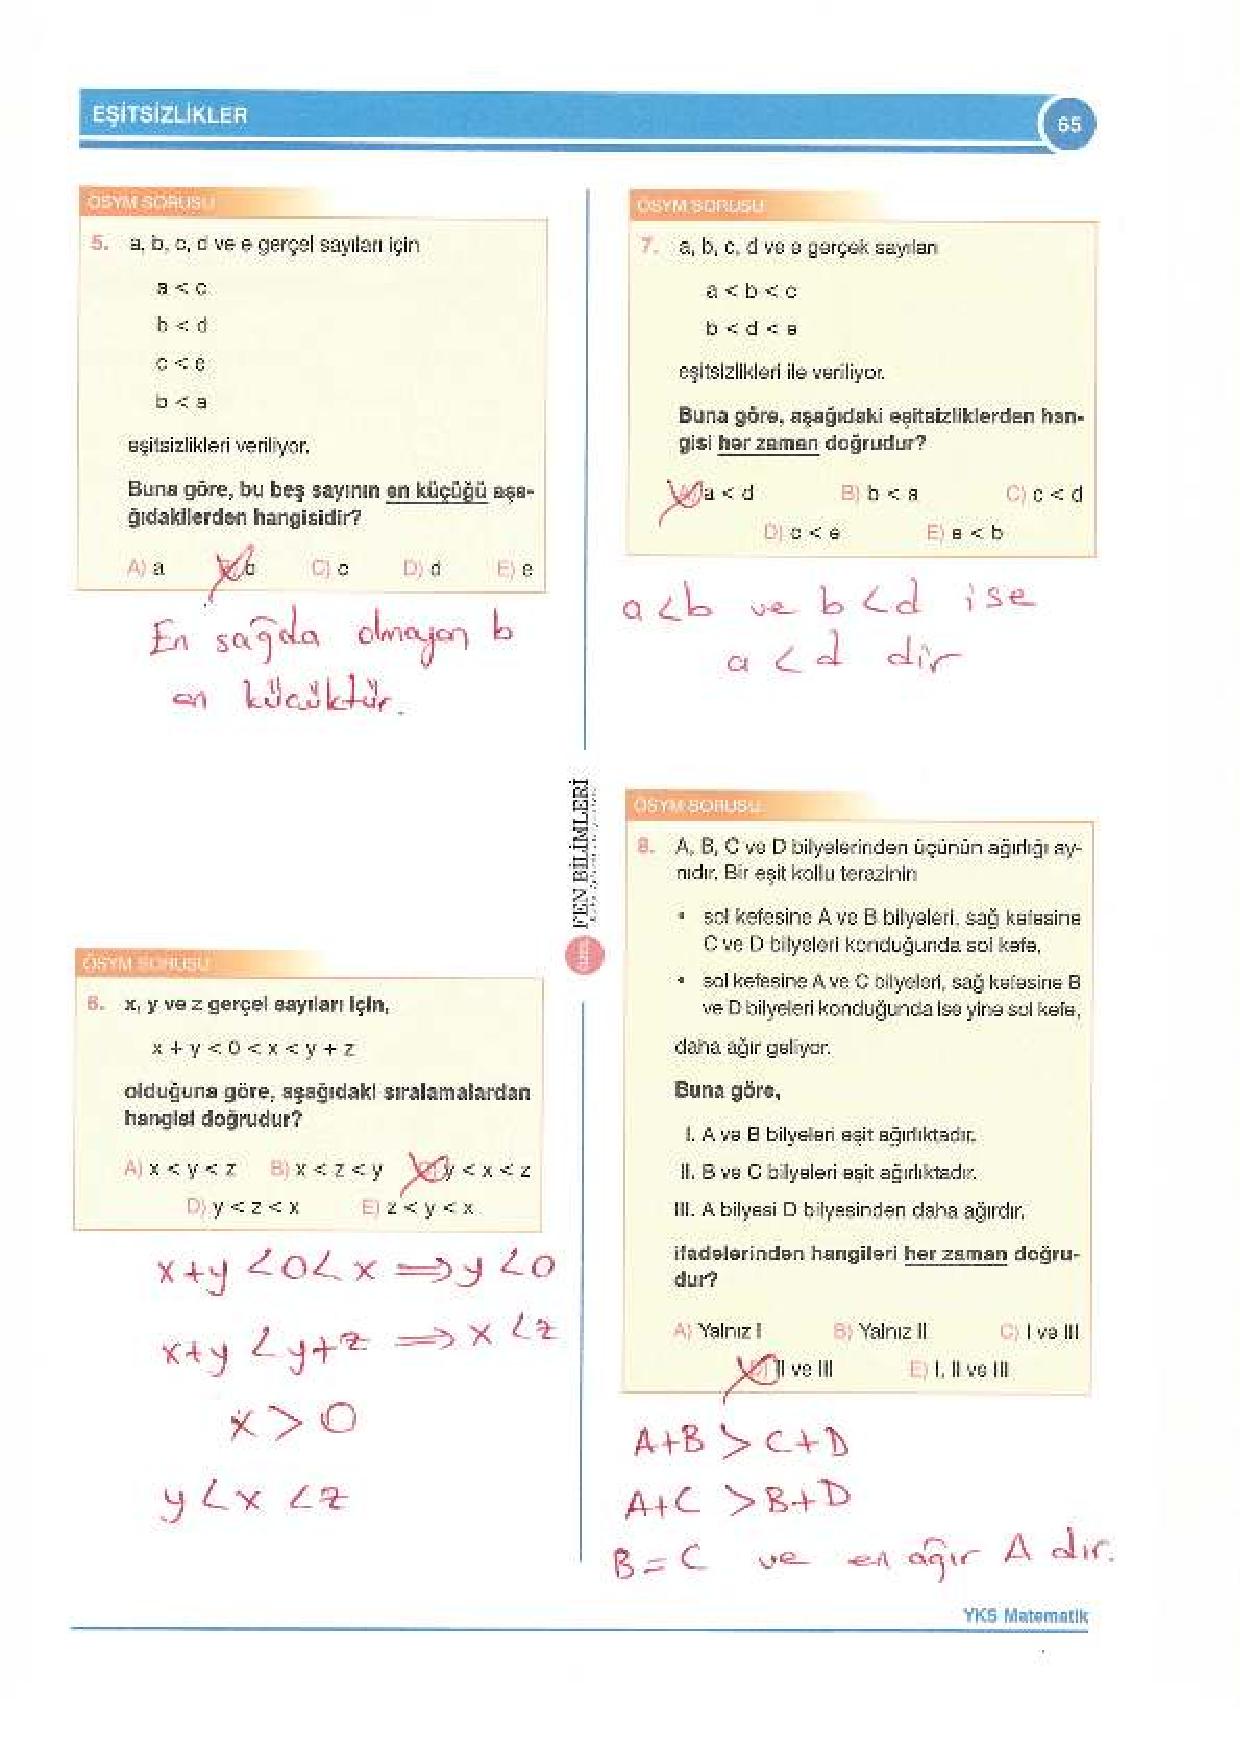 EŞİTSİZLİKLER
65
ÖSYM SORUSU
5. a, b, c, d ve e gerçel sayıları için
a < c
b < d
c < e
b < a
eşitsizlikleri veriliyor.
Buna göre, bu beş sayının en küçüğü aşa-
ğıdakilerden hangisidir?
A) a B) b C) c D) d E) e
En sağda olmayan b
en küçüktür.
ÖSYM SORUSU
6. x, y ve z gerçel sayıları için,
x + y < 0 < x < y + z
olduğuna göre, aşağıdaki sıralamalardan
hangisi doğrudur?
A) x < y < z B) x < z < y C) y < x < z
D) y < z < x E) z < y < x
x+y < 0 < x ⟹ y < 0
x+y < y+z ⟹ x < z
x > 0
y < x < z
FEN BİLİMLERİ
ÖSYM SORUSU
7. a, b, c, d ve e gerçek sayıları
a < b < c
b < d < e
eşitsizlikleri ile veriliyor.
Buna göre, aşağıdaki eşitsizliklerden han-
gisi her zaman doğrudur?
A) a < d B) b < a C) c < d
D) c < e E) e < b
a < b ve b < d ise
a < d dir
ÖSYM SORUSU
8. A, B, C ve D bilyelerinden üçünün ağırlığı ay-
nıdır. Bir eşit kollu terazinin
• sol kefesine A ve B bilyeleri, sağ kefesine
C ve D bilyeleri konduğunda sol kefe,
• sol kefesine A ve C bilyeleri, sağ kefesine B
ve D bilyeleri konduğunda ise yine sol kefe,
daha ağır geliyor.
Buna göre,
I. A ve B bilyeleri eşit ağırlıktadır.
II. B ve C bilyeleri eşit ağırlıktadır.
III. A bilyesi D bilyesinden daha ağırdır.
ifadelerinden hangileri her zaman doğru-
dur?
A) Yalnız I B) Yalnız II C) I ve III
D) II ve III E) I, II ve III
A+B > C+D
A+C > B+D
B = C ve en ağır A dır.
YKS Matematik